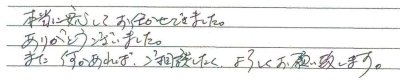 本当に安心しておまかせできました。
ありがとうございました。
また何かあれば、ご相談したく、よろしくお願い致します。